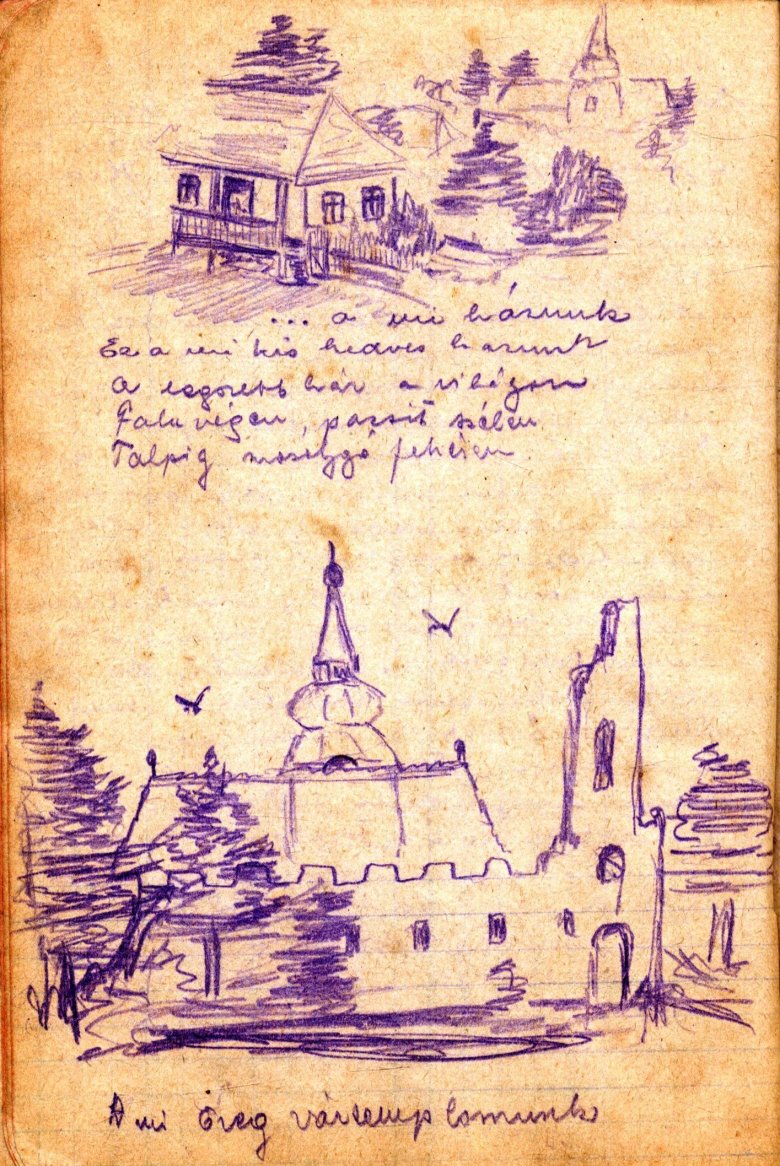 ... a mi házunk
Ez a mi kis kedves házunk
A legszebb ház a világon
Falu végén, pázsit szélén
Talpig mosolygó fehéren.
A mi öreg vártemplomunk